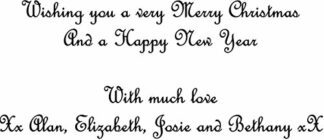 Wishing you a very Merry Christmas
And a Happy New Year
With much love
Xx Alan, Elizabeth, Josie and Bethany xX